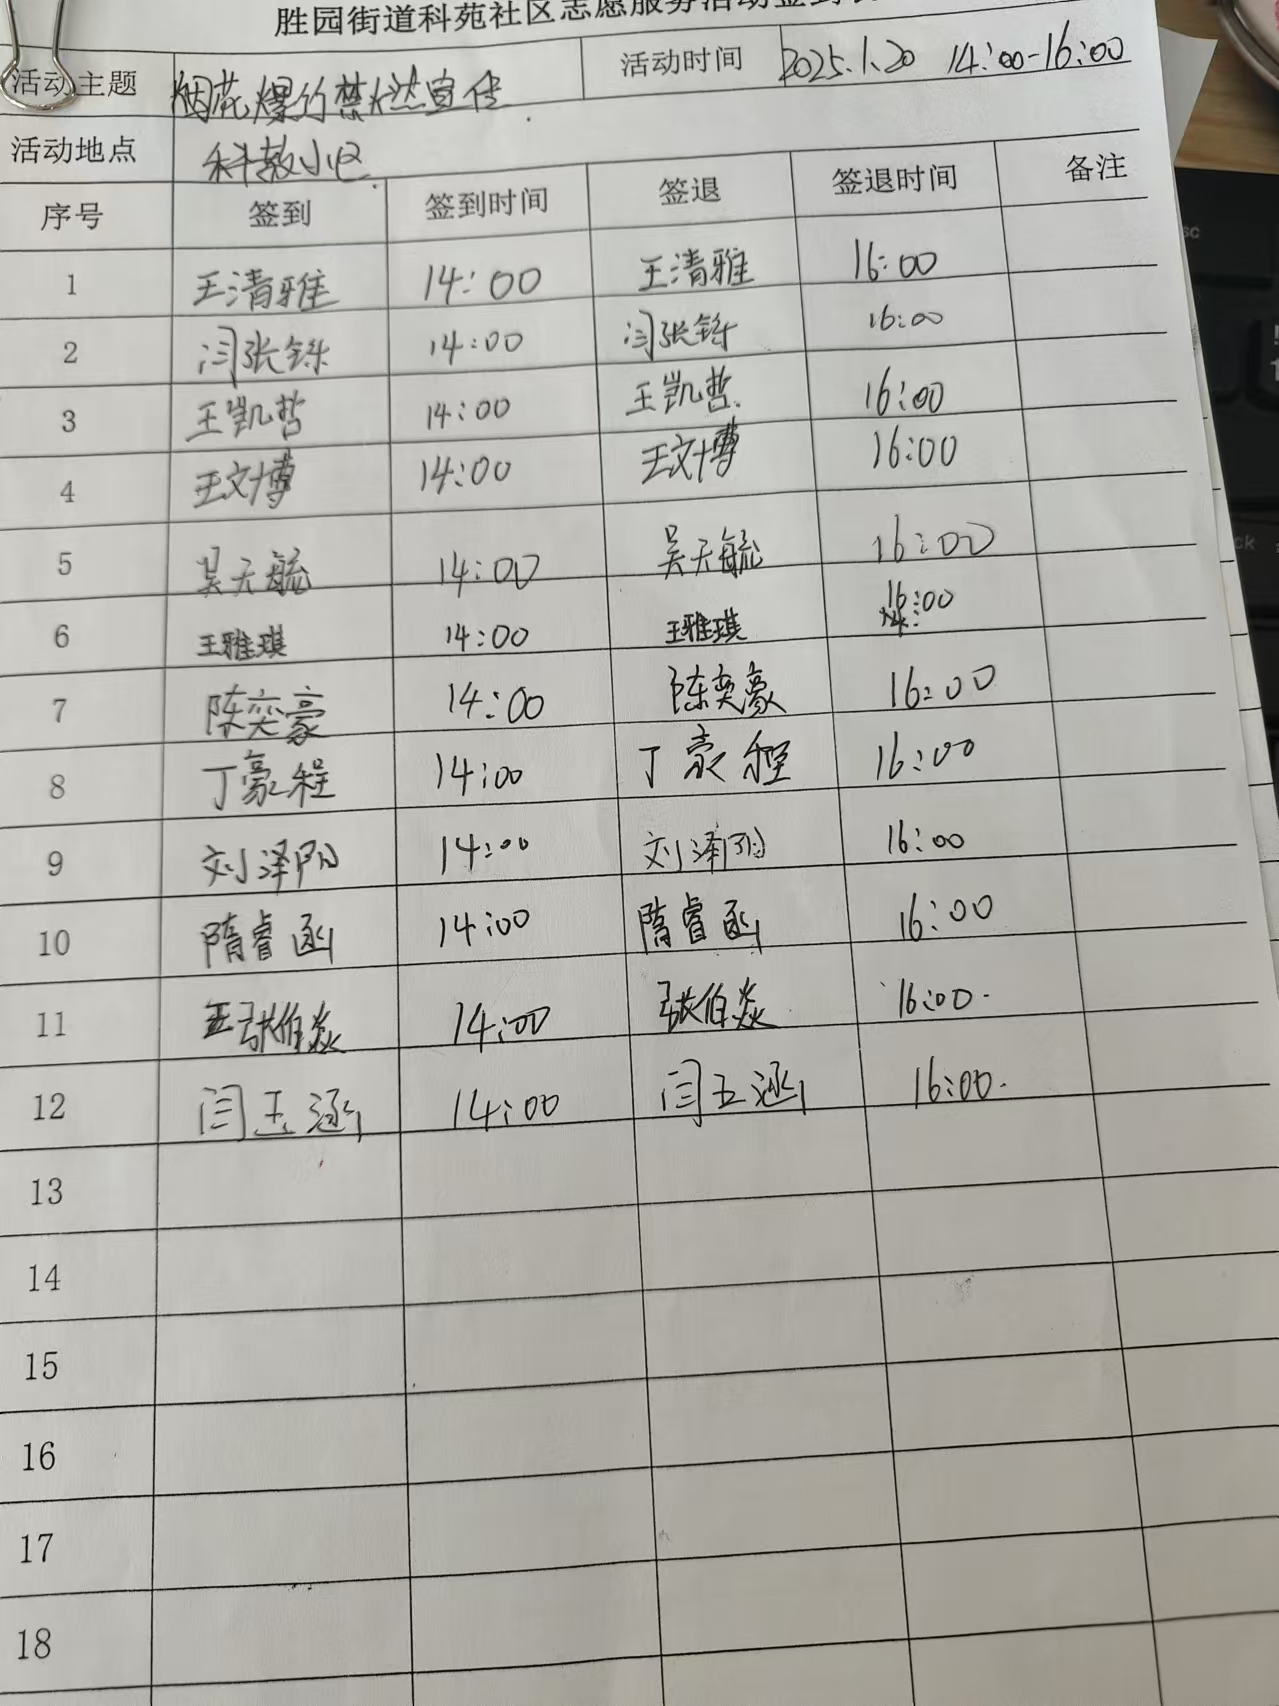 胜园街道科苑社区志愿服务活动签到表
活动主题 烟花爆竹禁燃宣传. 活动时间 2025.1.20 14:00-16:00
活动地点 科教小区
序号 签到 签到时间 签退 签退时间 备注
1 王清雅 14:00 王清雅 16:00
2 闫张铄 14:00 闫张铄 16:00
3 王凯哲 14:00 王凯哲. 16:00
4 王文博 14:00 王文博 16:00
5 吴天毓 14:00 吴天毓 16:00
6 王雅琪 14:00 王雅琪 16:00
7 陈奕豪 14:00 陈奕豪 16:00
8 丁豪程 14:00 丁豪程 16:00
9 刘泽阳 14:00 刘泽阳 16:00
10 隋睿函 14:00 隋睿函 16:00
11 张伯焱 14:00 张伯焱 16:00.
12 闫玉涵 14:00 闫玉涵 16:00.
13
14
15
16
17
18